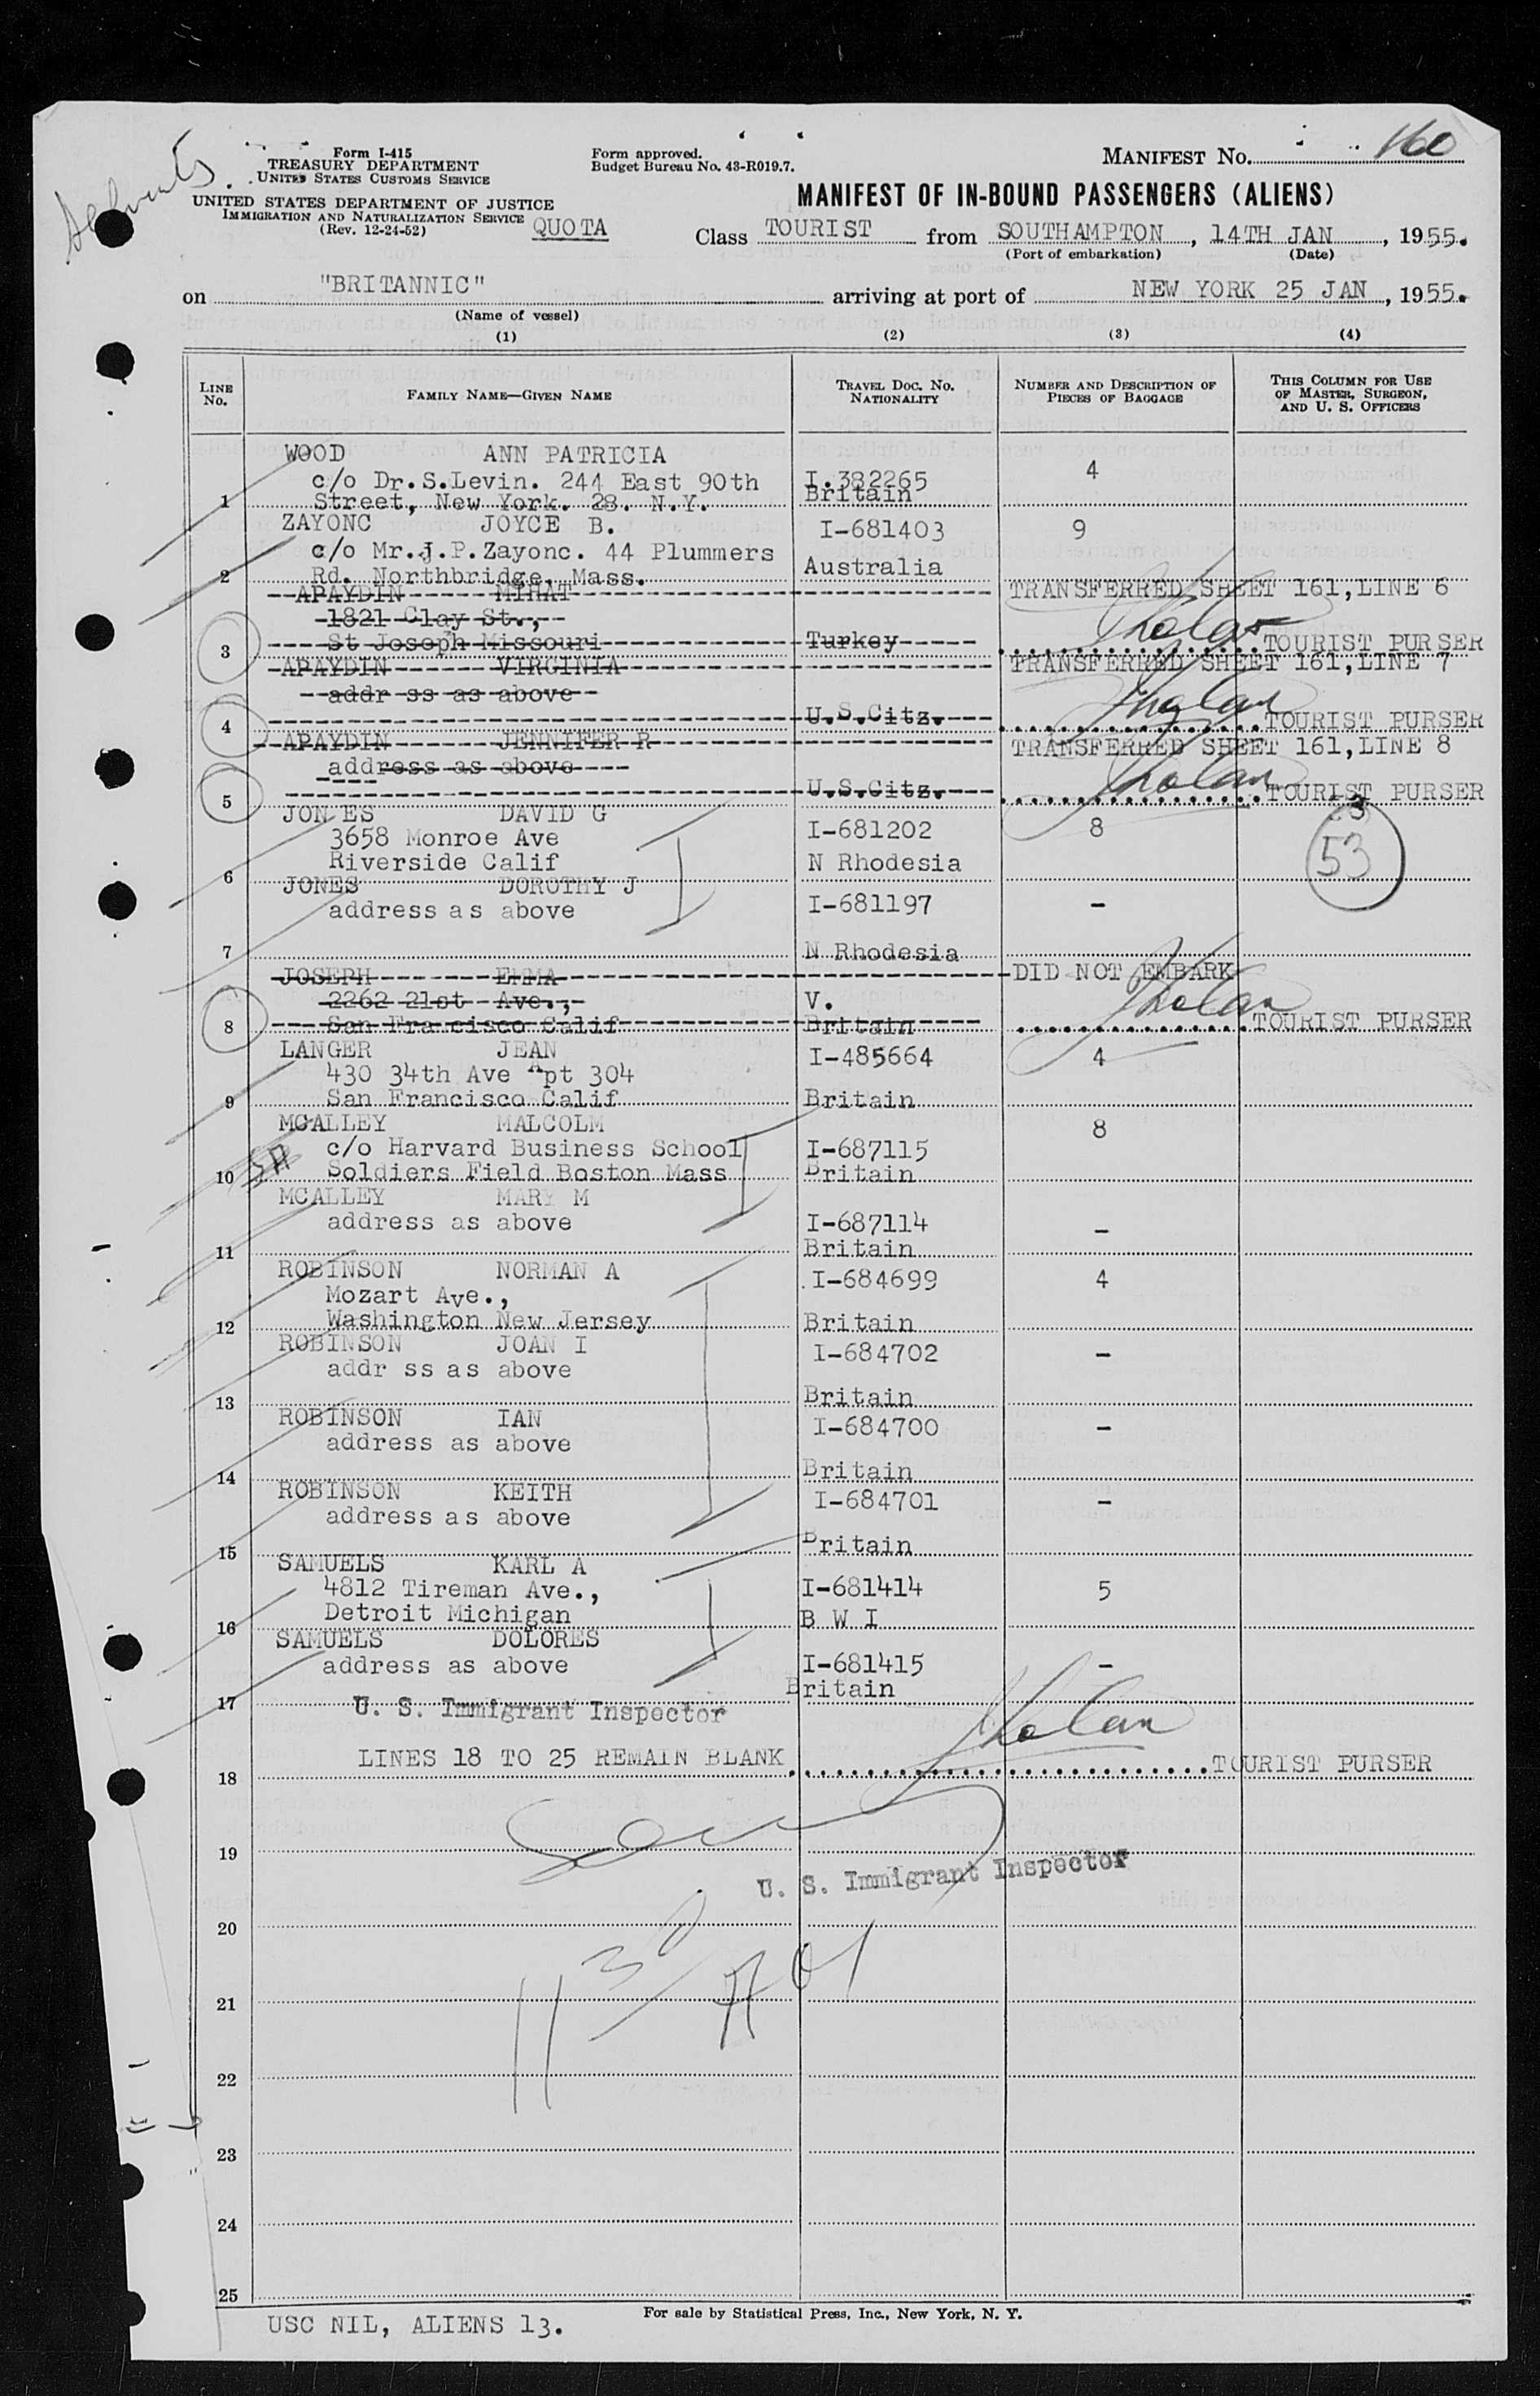 160
Form I-415
TREASURY DEPARTMENT
UNITED STATES CUSTOMS SERVICE
UNITED STATES DEPARTMENT OF JUSTICE
IMMIGRATION AND NATURALIZATION SERVICE
(Rev. 12-24-52)
QUOTA
Form approved.
Budget Bureau No. 43-R019.7.
MANIFEST No.
MANIFEST OF IN-BOUND PASSENGERS (ALIENS)
Class TOURIST from SOUTHAMPTON, 14TH JAN, 1955.
(Port of embarkation) (Date)
on "BRITANNIC" arriving at port of NEW YORK 25 JAN, 1955.
(Name of vessel)
(1) (2) (3) (4)
LINE No. FAMILY NAME—GIVEN NAME TRAVEL DOC. No. NATIONALITY NUMBER AND DESCRIPTION OF PIECES OF BAGGAGE THIS COLUMN FOR USE OF MASTER, SURGEON, AND U. S. OFFICERS
WOOD ANN PATRICIA 4
c/o Dr.S.Levin. 244 East 90th I.382265
1 Street, New York. 28. N.Y. Britain
ZAYONC JOYCE B. I-681403 9
c/o Mr.J.P.Zayonc. 44 Plummers Australia
2 Rd. Northbridge, Mass.
APAYDIN MIHAT TRANSFERRED SHEET 161,LINE 6
1821 Clay St.,
3 St Joseph Missouri Turkey TOURIST PURSER
APAYDIN VIRGINIA TRANSFERRED SHEET 161,LINE 7
addr ss as above
4 U.S.Citz. TOURIST PURSER
APAYDIN JENNIFER R TRANSFERRED SHEET 161,LINE 8
address as above
5 U.S.Citz. TOURIST PURSER
JON ES DAVID G I-681202 8
3658 Monroe Ave 53
6 Riverside Calif N Rhodesia
JONES DOROTHY J I-681197 -
address as above
7 N Rhodesia
JOSEPH EMMA DID NOT EMBARK
2262 21st Ave., V.
8 San Fra cisco Calif Britain TOURIST PURSER
LANGER JEAN I-485664 4
430 34th Ave Apt 304
9 San Francisco Calif Britain
MCALLEY MALCOLM 8
c/o Harvard Business School I-687115
10 Soldiers Field Boston Mass Britain
MCALLEY MARY M
address as above I-687114 -
11 Britain
ROBINSON NORMAN A I-684699 4
Mozart Ave.,
12 Washington New Jersey Britain
ROBINSON JOAN I I-684702 -
addr ss as above
13 Britain
ROBINSON IAN I-684700 -
address as above
14 Britain
ROBINSON KEITH I-684701 -
address as above
15 Britain
SAMUELS KARL A
4812 Tireman Ave., I-681414 5
16 Detroit Michigan B W I
SAMUELS DOLORES
address as above I-681415 -
17 Britain
U. S. Immigrant Inspector
18 LINES 18 TO 25 REMAIN BLANK. TOURIST PURSER
19
U. S. Immigrant Inspector
20
21
22
23
24
25
For sale by Statistical Press, Inc., New York, N. Y.
USC NIL, ALIENS 13.